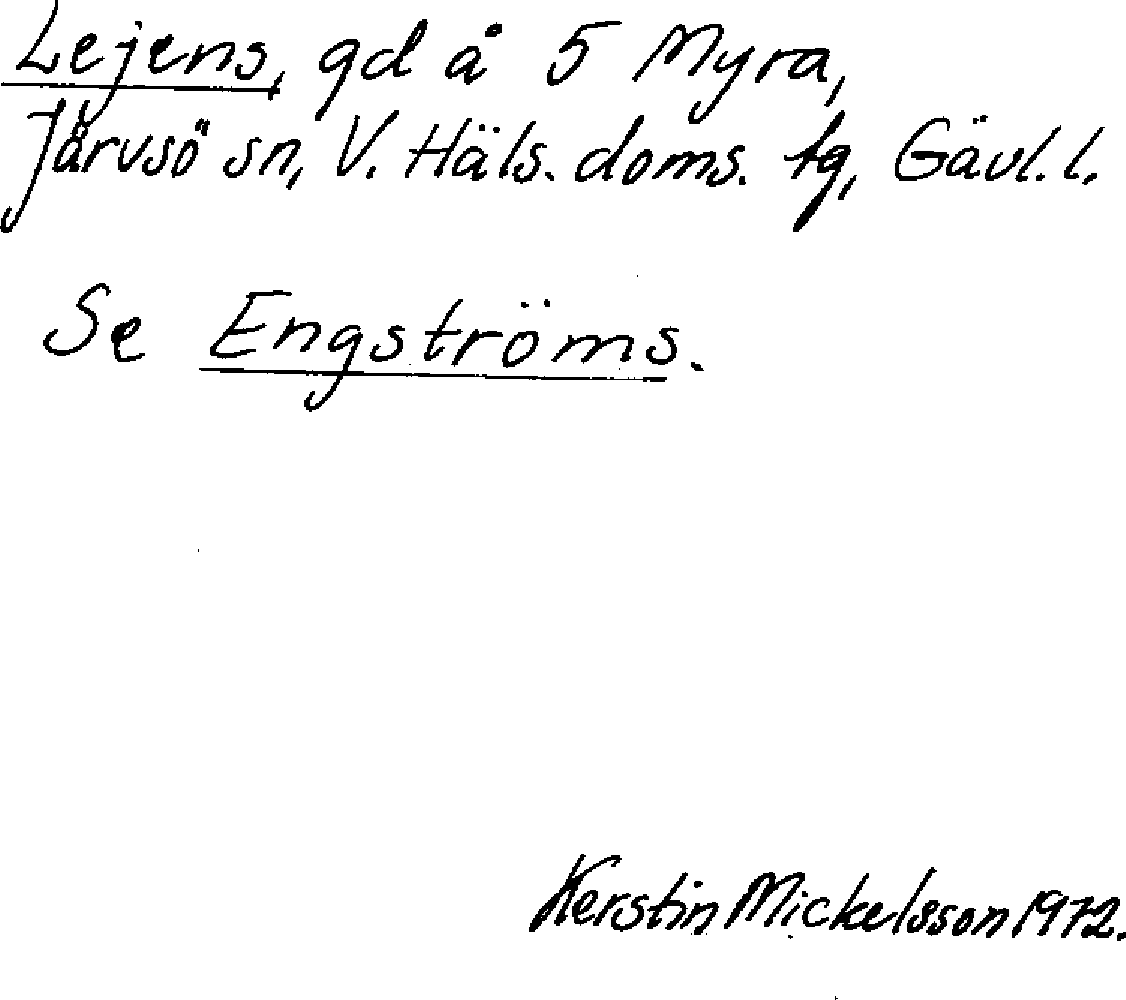 Lejens, gd å 5 Myra,
Järvsö sn, V. Häls. doms. tg, Gävl. l.
Se Engströms.
Kerstin Mickelsson 1972.